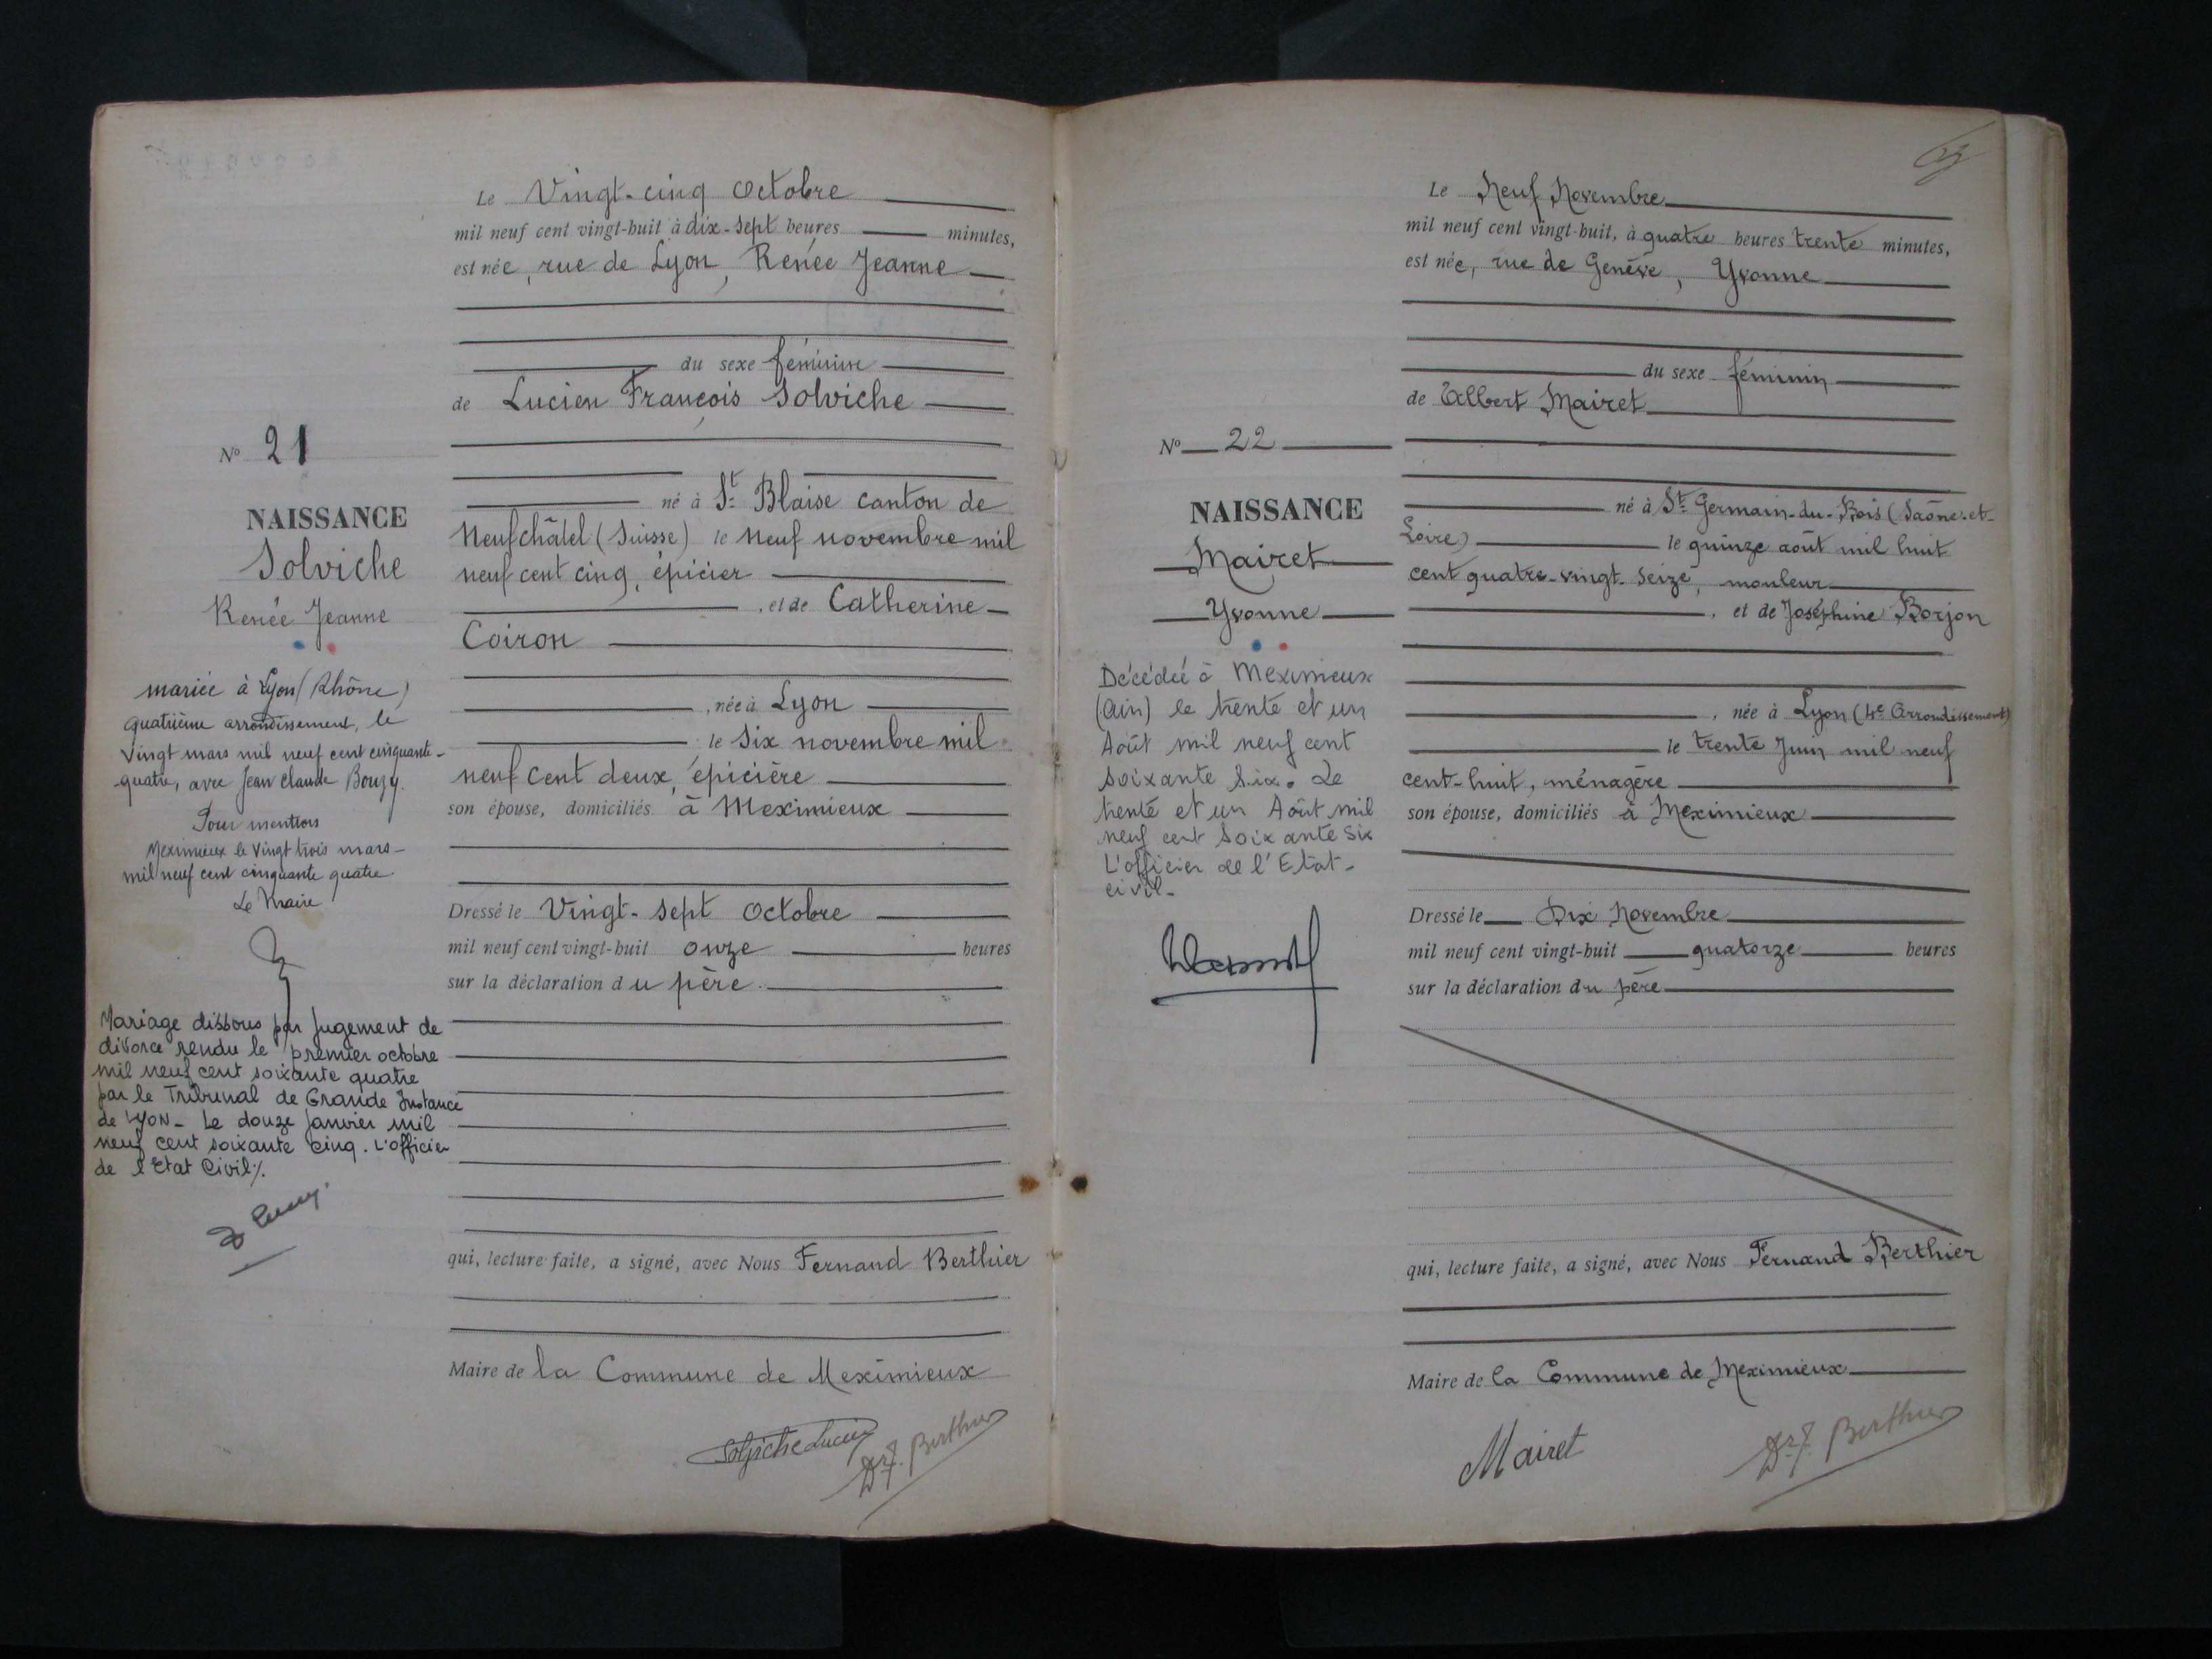 Le Vingt-cinq Octobre
mil neuf cent vingt-huit à dix-sept heures minutes,
est née, rue de Lyon, Renée Jeanne
du sexe féminin
de Lucien François Solviche
né à St Blaise canton de
Neufchâtel (Suisse) le neuf novembre mil
neuf cent cinq, épicier
, et de Catherine
Coiron
, née à Lyon
le six novembre mil
neuf cent deux, épicière
son épouse, domiciliés à Meximieux
Dressé le Vingt-sept Octobre
mil neuf cent vingt-huit onze heures
sur la déclaration du père.
qui, lecture faite, a signé, avec Nous Fernand Berthier
Maire de la Commune de Meximieux
Solviche Lucien
Dr F. Berthier
No 21
NAISSANCE
Solviche
Renée Jeanne
mariée à Lyon (Rhône)
quatrième arrondissement, le
vingt mars mil neuf cent cinquante-
quatre, avec Jean Claude Bouzy.
Pour mention
Meximieux le vingt trois mars
mil neuf cent cinquante quatre
Le Maire
Mariage dissous par jugement de
divorce rendu le premier octobre
mil neuf cent soixante quatre
par le Tribunal de Grande Instance
de LYON - Le douze Janvier mil
neuf cent soixante cinq. L'officier
de l'Etat Civil ./.
Le Neuf Novembre
mil neuf cent vingt-huit, à quatre heures trente minutes,
est née, rue de Genève, Yvonne
du sexe féminin
de Albert Mairet
né à St Germain-du-Bois (Saône-et-
Loire) le quinze août mil huit
cent quatre-vingt-seize, mouleur
, et de Joséphine Borjon
, née à Lyon (4e Arrondissement)
le trente Juin mil neuf
cent-huit, ménagère
son épouse, domiciliés à Meximieux
Dressé le Dix Novembre
mil neuf cent vingt-huit quatorze heures
sur la déclaration du père
qui, lecture faite, a signé, avec Nous Fernand Berthier
Maire de la Commune de Meximieux
Mairet
Dr F. Berthier
No 22
NAISSANCE
Mairet
Yvonne
Décédée à Meximieux
(Ain) le trente et un
Août mil neuf cent
soixante six. Le
trente et un Août mil
neuf cent soixante six
L'officier de l'Etat-
civil-